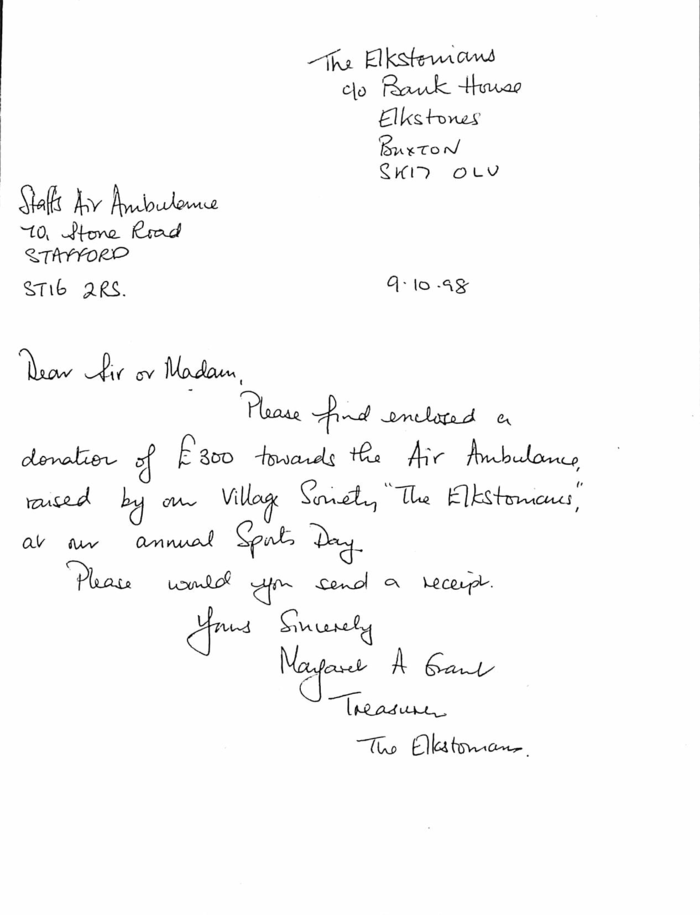 The Elkstonians
c/o Bank House
Elkstones
BUXTON
SK17 OLU
Staffs Air Ambulance
70, Stone Road
STAFFORD
ST16 2RS.
9.10.98
Dear Sir or Madam,
Please find enclosed a
donation of £300 towards the Air Ambulance,
raised by our Village Society, "The Elkstonians",
at our annual Sports Day.
Please would you send a receipt.
Yours Sincerely
Margaret A Grant
Treasurer
The Elkstonians.